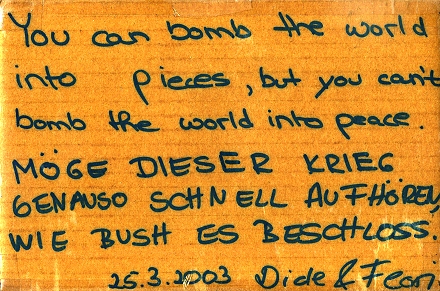 You can bomb the world
into pieces, but you can't
bomb the world into peace.
MÖGE DIESER KRIEG
GENAUSO SCHNELL AUFHÖREN,
WIE BUSH ES BESCHLOSS.
25.3.2003 Dide &